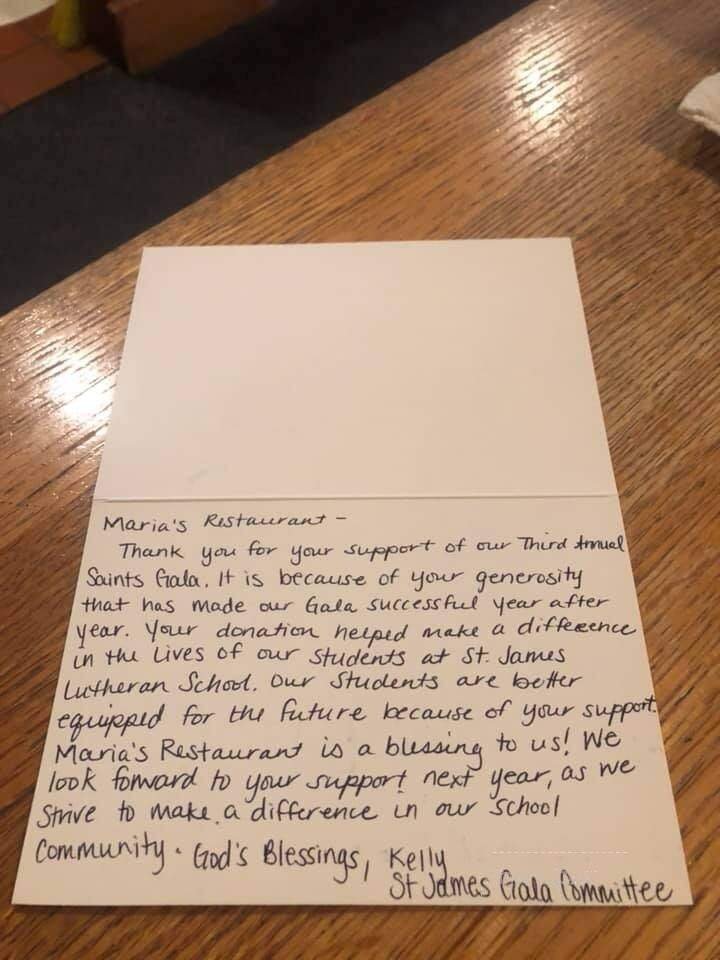 Maria's Restaurant -
Thank you for your support of our Third Annual
Saints Gala. It is because of your generosity
that has made our Gala successful year after
year. Your donation helped make a difference
in the lives of our students at St. James
Lutheran School. Our students are better
equipped for the future because of your support.
Maria's Restaurant is a blessing to us! We
look forward to your support next year, as we
strive to make a difference in our school
community. God's Blessings, Kelly
St James Gala Committee